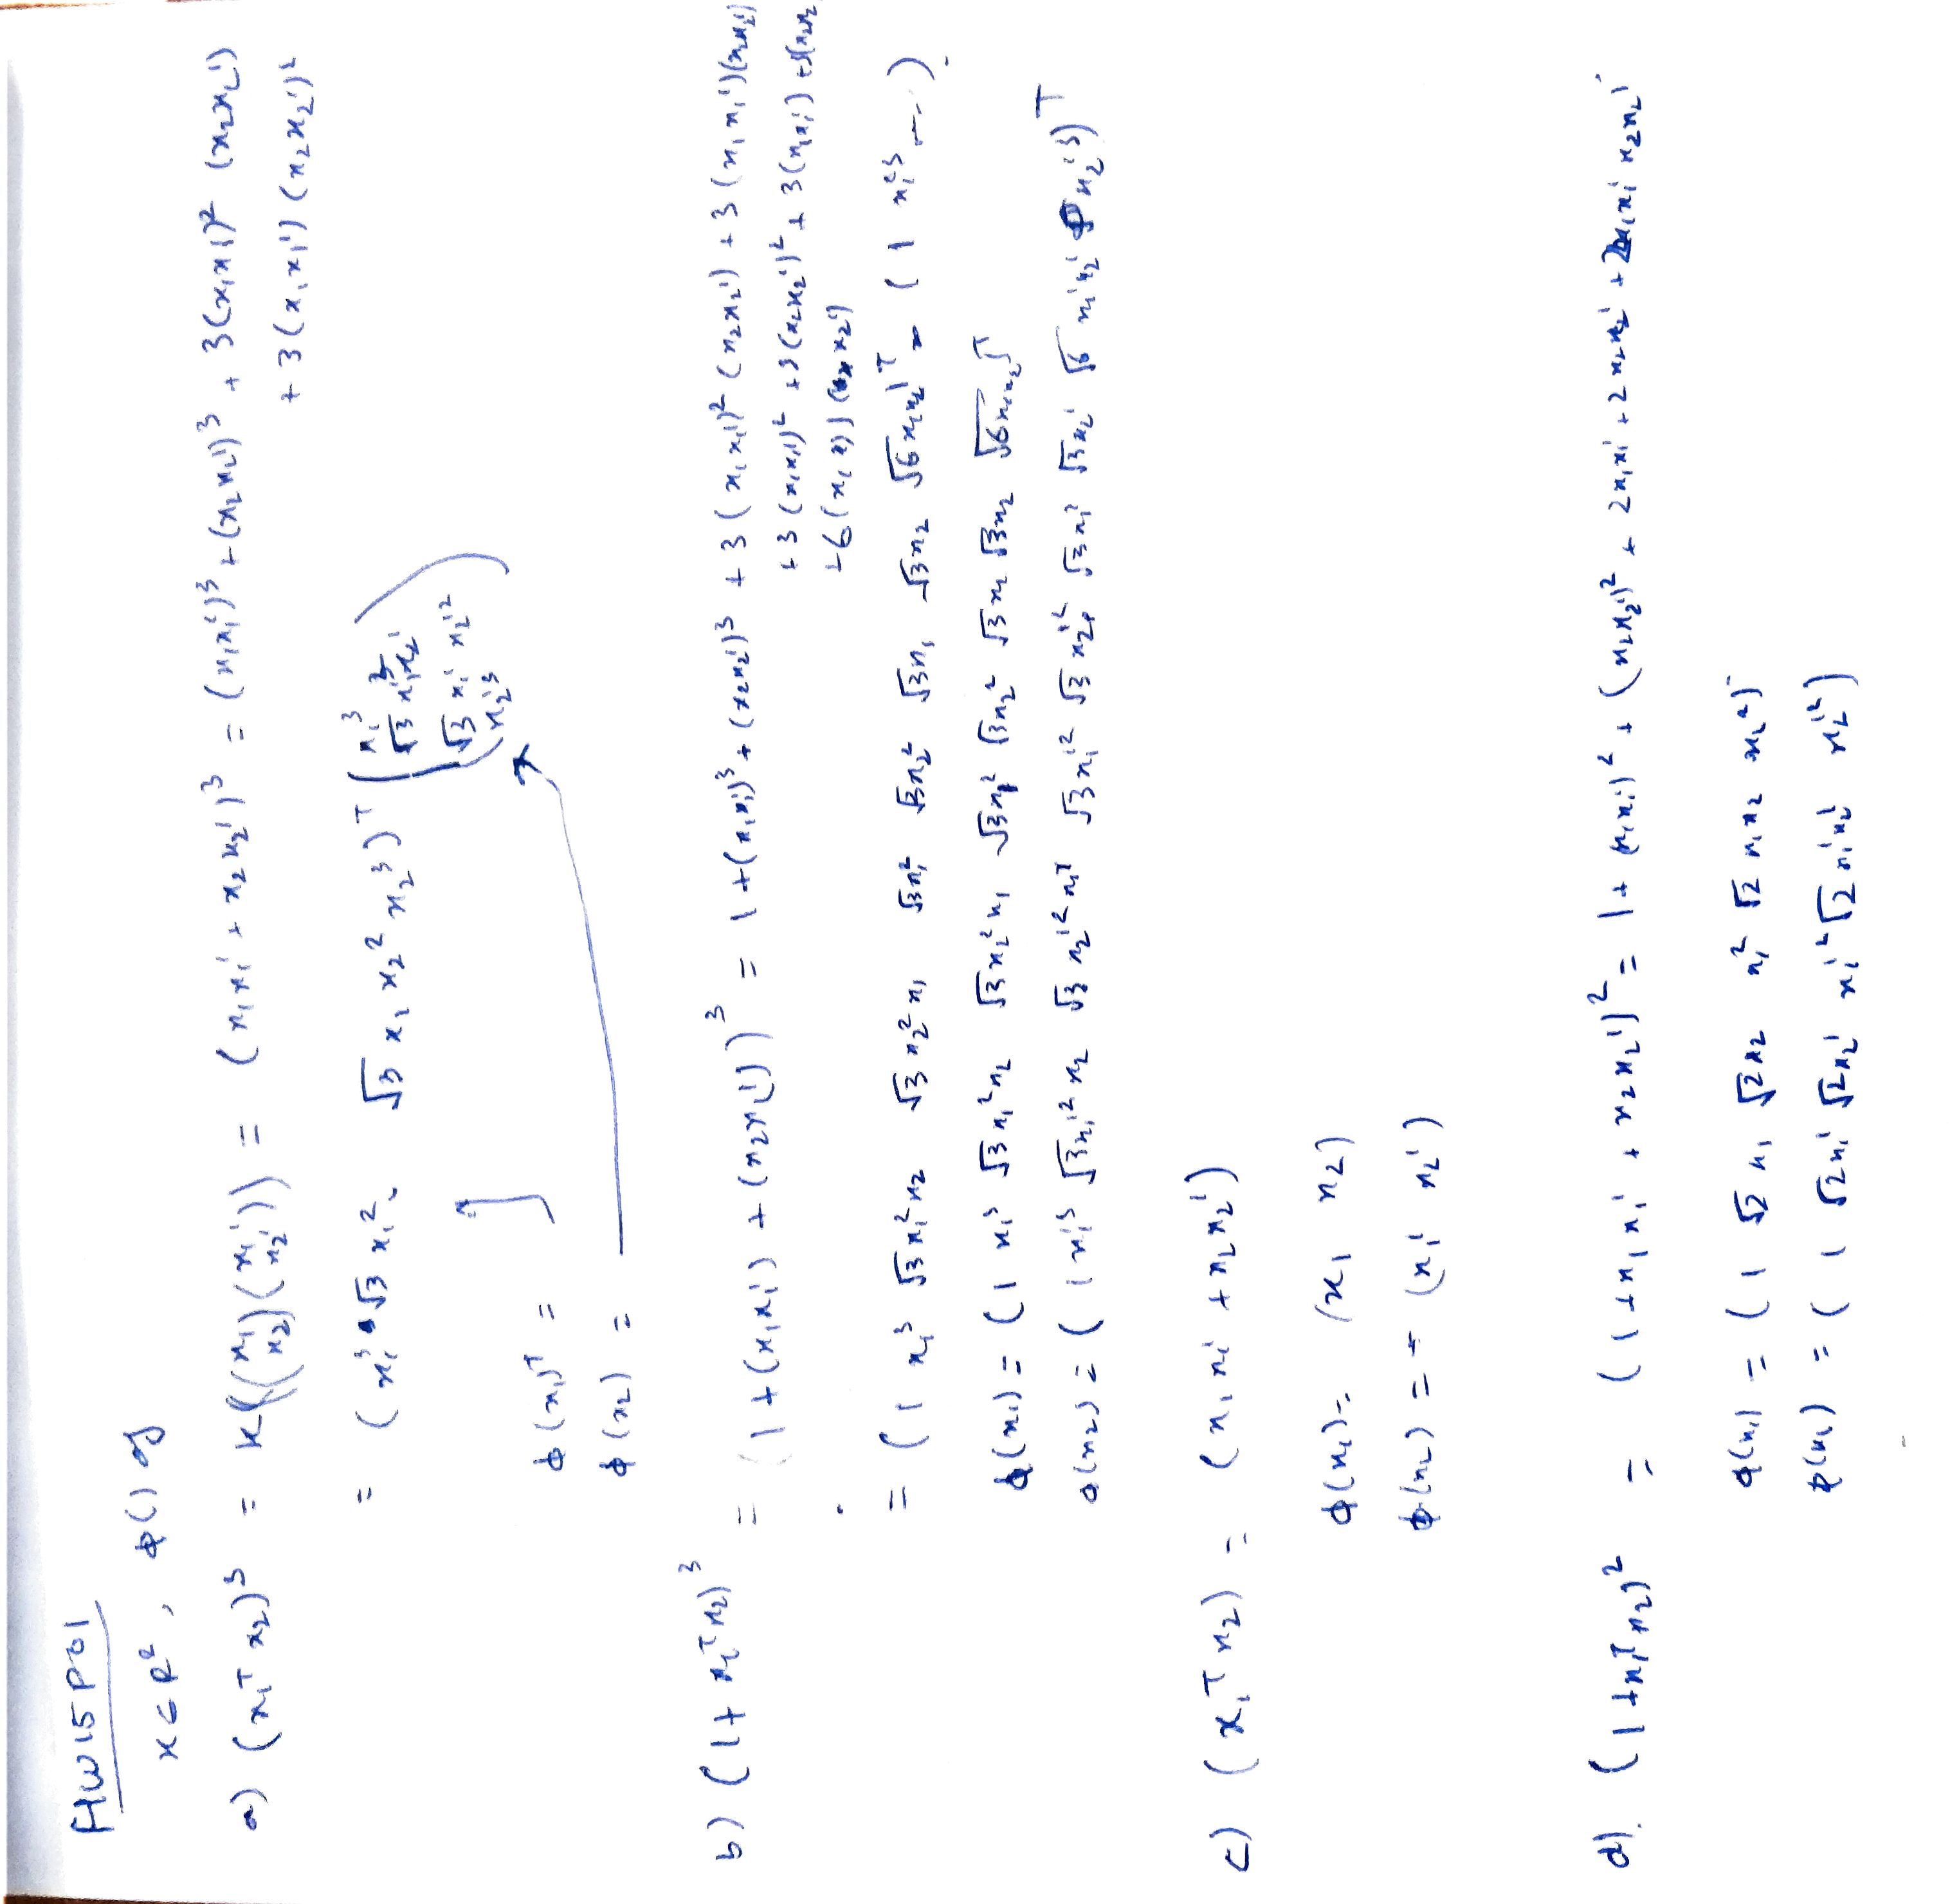 HW15P01
x ∈ R², φ() of
a) (x₁ᵀ x₂)³ = K((x₁ x₂)(x₁' x₂')) = (x₁x₁' + x₂x₂')³ = (x₁x₁')³ + (x₂x₂')³ + 3(x₁x₁')² (x₂x₂')
+ 3(x₁x₁')(x₂x₂')²
= (x₁³ √3 x₁² √3 x₁ x₂² x₂³)ᵀ (x₁'³
√3 x₁'² x₂'
√3 x₁' x₂'²
x₂'³)
φ(x₁)ᵀ =
φ(x₂) =
b) (1 + x₁ᵀ x₂)³ = (1 + (x₁x₁') + (x₂x₂'))³ = 1 + (x₁x₁')³ + (x₂x₂')³ + 3(x₁x₁')² (x₂x₂') + 3(x₁x₁')(x₂x₂')
+ 3(x₁x₁')² + 3(x₂x₂')² + 3(x₁x₁') + 3(x₂x₂
+ 6(x₁x₁')(x₂x₂')
= (1 x₁³ √3x₁²x₂ √3x₂²x₁ √3x₁² √3x₂² √3x₁ √3x₂ √6x₁x₂)ᵀ = (1 x₁'³ ...)
φ(x₁) = (1 x₁³ √3x₁²x₂ √3x₂²x₁ √3x₁² √3x₂² √3x₁ √3x₂ √6x₁x₂)ᵀ
φ(x₂) = (1 x₁'³ √3x₁'²x₂ √3x₂'²x₁' √3x₁'² √3x₂'² √3x₁' √3x₂' √6 x₁'x₂' x₂'³)ᵀ
c) (x₁ᵀ x₂) = (x₁x₁' + x₂x₂')
φ(x₁) = (x₁ x₂)
φ(x₂) = (x₁' x₂')
d). (1 + x₁ᵀ x₂)² = (1 + x₁x₁' + x₂x₂')² = 1 + (x₁x₁')² + (x₂x₂')² + 2x₁x₁' + 2x₂x₂' + 2x₁x₁' x₂x₂'
φ(x₁) = (1 √2 x₁ √2x₂ x₁² √2 x₁x₂ x₂²)
φ(x₂) = (1 √2x₁' √2x₂' x₁'² √2 x₁'x₂' x₂'²)